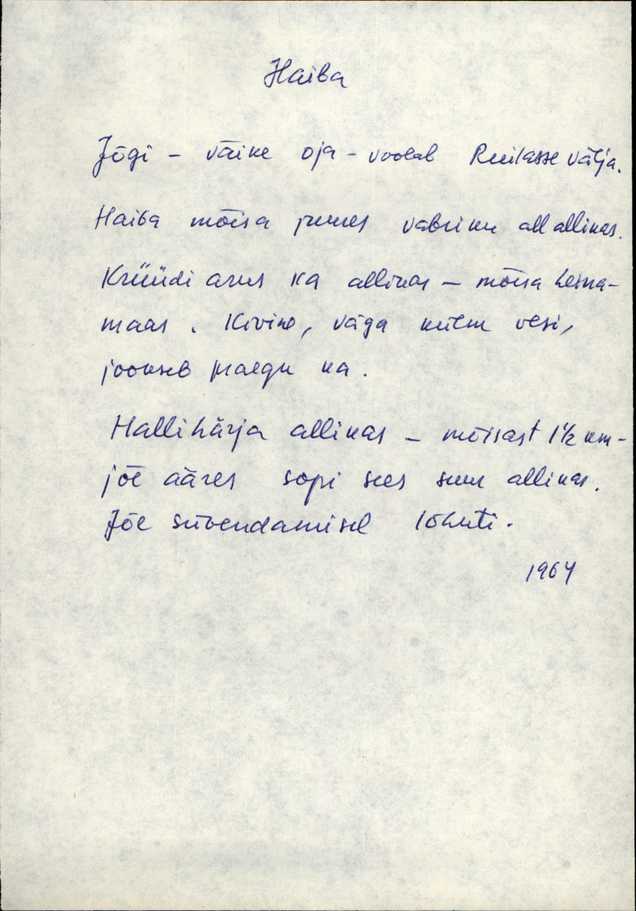 Haiba
Jõgi – väike oja – voolab Ruilasse välja.
Haiba mõisa juures vabriku all allikas.
Krüüdi arus ka allikas – mõisa heina-
maas. Kivine, väga külm vesi,
jookseb praegu ka.
Hallihärja allikas – mõisast 1½ km –
jõe ääres sopi sees suur allikas.
Jõe süvendamisel lõhuti.
1964